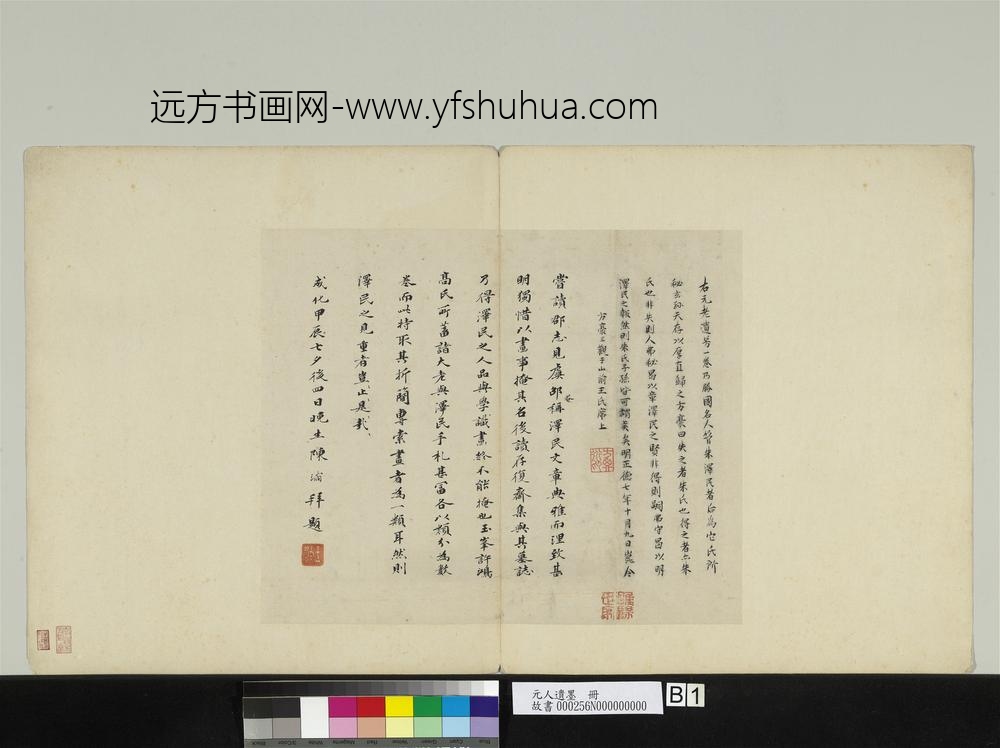 远方书画网-www.yfshuhua.com
右元老遺芳一卷乃勝國名人答朱澤民者后為它氏所
秘玄孫天存以厚直歸之方豪曰失之者朱氏也得之者亦朱
氏也非失則人弗秘曷以章澤民之賢非得則嗣弗守曷以明
澤民之報然則朱氏子孫皆可謂美矣明正德七年十月九日崑令
方豪三觀于山前王氏席上
嘗讀郡志見虞邵菴稱澤民文章典雅而理致甚
明獨惜以畫事掩其名後讀存復齋集與其墓誌
乃得澤民之人品與學識畫終不能掩也玉峯許鴻
高氏所蓄諸大老與澤民手札甚富各以類分為數
卷而此特取其折簡專索畫者為一類耳然則
澤民之見重者豈止是哉
成化甲辰七夕後四日晚生陳 拜題
元人遺墨 冊
故書000256N000000000
B 1
Black
3/Color
White
Magenta
Red
Yellow
Green
Cyan
Blue